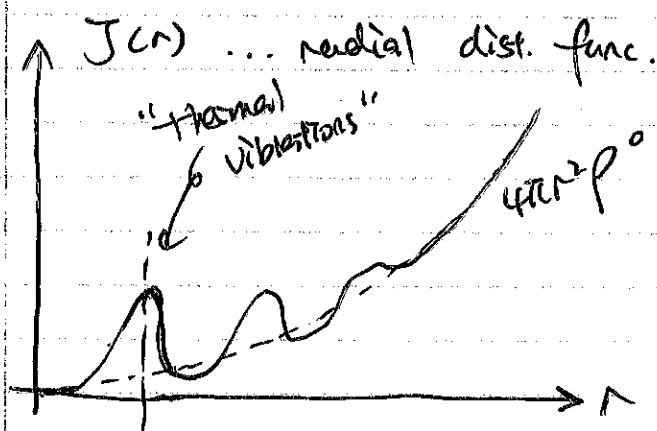 J(r) ... radial dist. func.
"thermal
vibrations"
4πr²ρ°
r